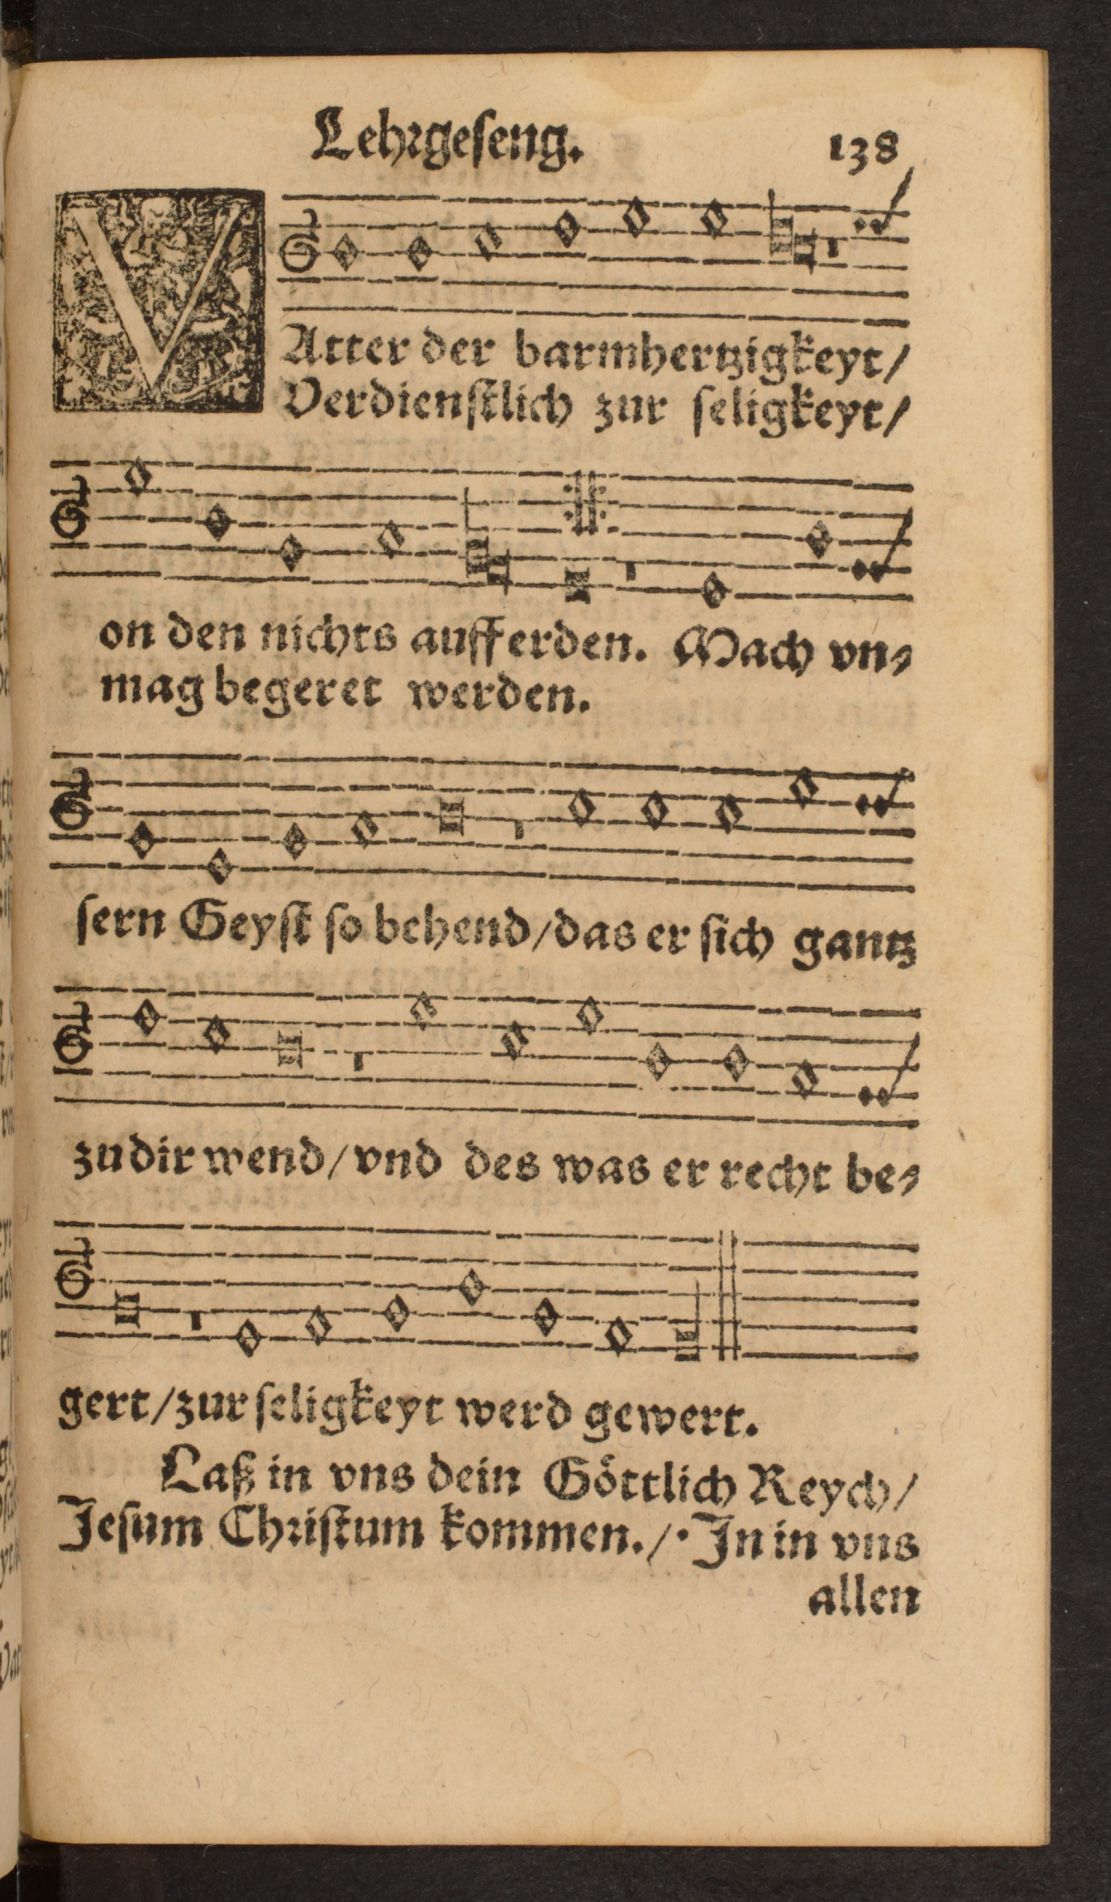 Lehrgeseng. 138
VAtter der barmhertzigkeyt/
Verdienstlich zur seligkeyt/
on den nichts auff erden. Mach vn⸗
mag begeret werden.
sern Geyst so behend/das er sich gantz
zu dir wend/vnd des was er recht be⸗
gert/zur seligkeyt werd gewert.
Laß in vns dein Göttlich Reych/
Jesum Christum kommen./· In in vns
allen